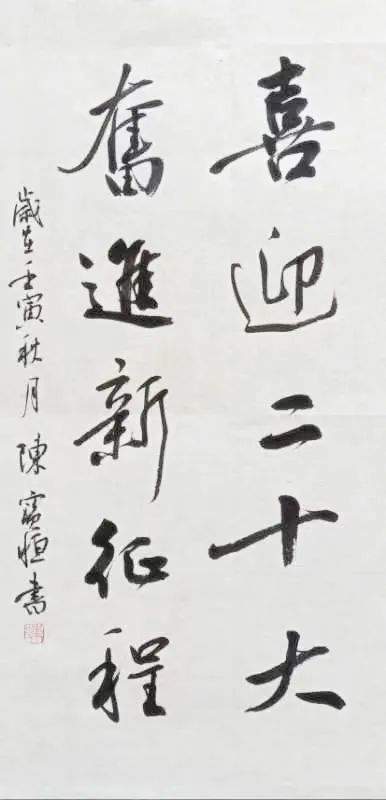 喜迎二十大
奮進新征程
歲在壬寅秋月 陳寶恒書